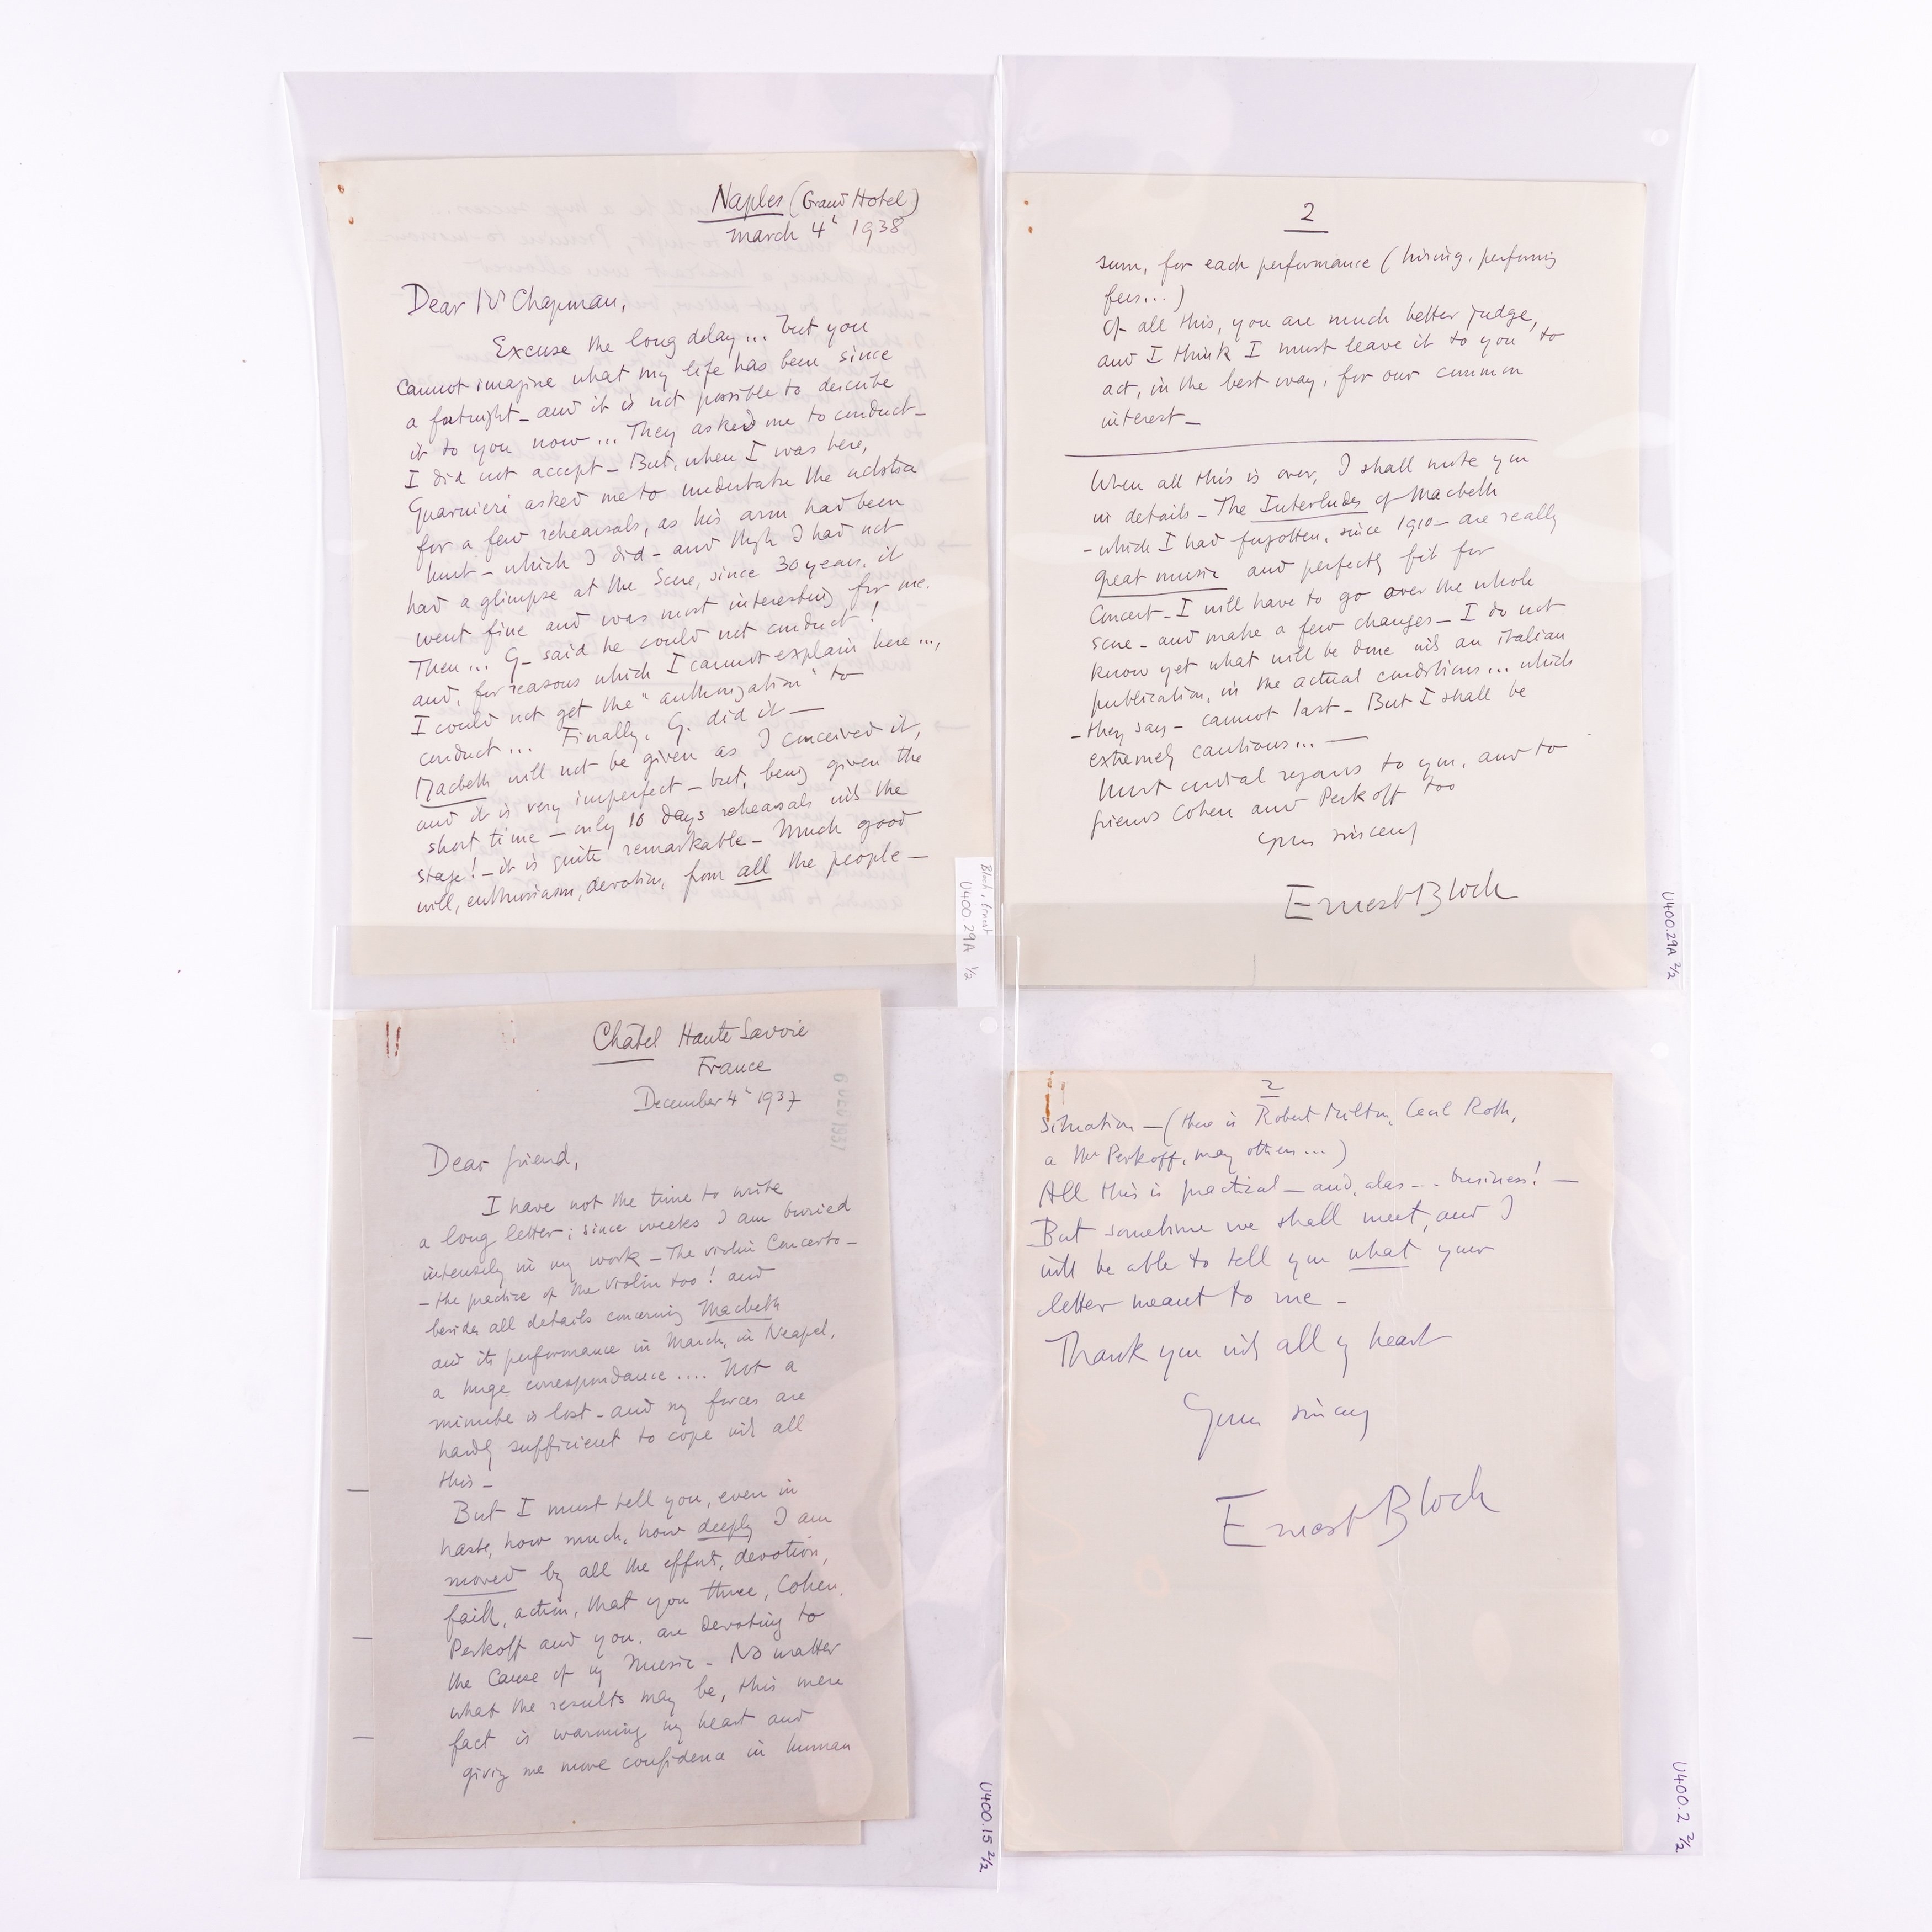 Naples (Grand Hotel)
March 4th 1938
Dear Mr Chapman,
Excuse the long delay... but you
cannot imagine what my life has been since
a fortnight - and it is not possible to describe
it to you now... They asked me to conduct -
I did not accept - But, when I was here,
Guarnieri asked me to undertake the
for a few rehearsals, as his arm had been
hurt - which I did - and though I had not
had a glimpse at the score, since 30 years, it
went fine and was most interesting for me.
Then... G - said he could not conduct!
and, for reasons which I cannot explain here...,
I could not get the "authorization" to
conduct... Finally, G. did it -
Macbeth will not be given as I conceived it,
and it is very imperfect - but, being given the
short time - only 10 days rehearsals with the
stage! - it is quite remarkable - Much good
will, enthusiasm, devotion, from all the people -
Bloch, Ernest
U400.29A 1/2
2
sum, for each performance (hiring, performing
fees...)
Of all this, you are much better judge,
and I think I must leave it to you to
act, in the best way, for our common
interest -
When all this is over, I shall write you
in details - The Interludes of Macbeth
- which I had forgotten, since 1910 - are really
great music and perfectly fit for
Concert - I will have to go over the whole
score - and make a few changes - I do not
know yet what will be done with an italian
publication, in the actual conditions... which
- they say - cannot last - But I shall be
extremely cautious... -
Most cordial regards to you, and to
friends Cohen and Perkoff too
Yours sincerely
Ernest Bloch
U400.29A 2/2
Châtel Haute Savoie
France
December 4th 1937
6 DEC 1937
Dear friend,
I have not the time to write
a long letter; since weeks I am buried
intensely in my work - The violin Concerto -
- the practice of the violin too! and
besides all details concerning Macbeth
and its performance in March, in Neapel,
a huge correspondance.... Not a
minute is lost - and my forces are
hardly sufficient to cope with all
this -
But I must tell you, even in
haste, how much, how deeply I am
moved by all the effort, devotion,
faith, action, that you three, Cohen,
Perkoff and you, are devoting to
the Cause of my Music - No matter
what the results may be, this mere
fact is warming my heart and
giving me more confidence in human
U400.15 2/2
2
situation - (there is Robert Milton, Cecil Roth,
a Mr Perkoff, many others...)
All this is practical - and, alas... business! -
But sometime we shall meet, and I
will be able to tell you what your
letter meant to me -
Thank you with all my heart
Yours sincerely
Ernest Bloch
U400.2 2/2